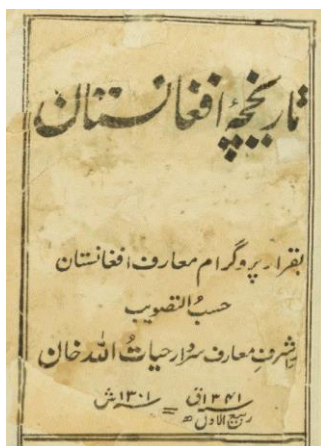 تاریخچهٔ افغانستان
بقرار پروگرام معارف افغانستان
حسب التصویب
معارف سردار حیات الله خان
۱۳۴۱ق = ۱۳۰۱ش
ربیع الاول